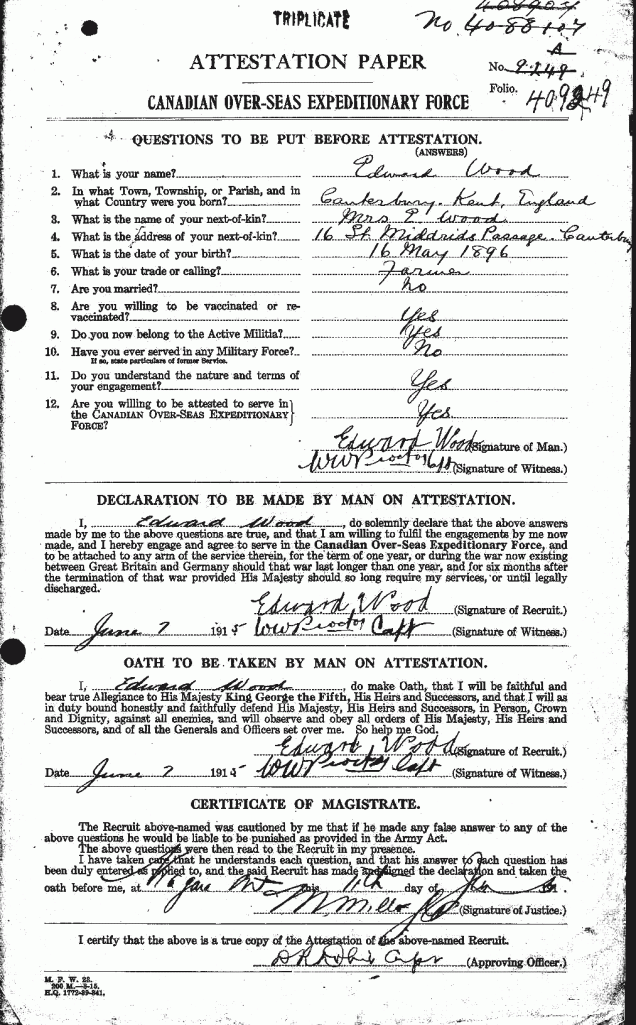 TRIPLICATE
No 4088107
ATTESTATION PAPER
No.
A
CANADIAN OVER-SEAS EXPEDITIONARY FORCE
Folio.
QUESTIONS TO BE PUT BEFORE ATTESTATION.
(ANSWERS)
1. What is your name? Edward Wood
2. In what Town, Township, or Parish, and in
what Country were you born? Canterbury. Kent, England
3. What is the name of your next-of-kin? Mrs P. Wood
4. What is the address of your next-of-kin? 16 St Middrids Passage. Canterbury
5. What is the date of your birth? 16 May 1896
6. What is your trade or calling? Farmer
7. Are you married? no
8. Are you willing to be vaccinated or re-
vaccinated? Yes
9. Do you now belong to the Active Militia? Yes
10. Have you ever served in any Military Force? No
If so, state particulars of former Service.
11. Do you understand the nature and terms of
your engagement? Yes
12. Are you willing to be attested to serve in
the CANADIAN OVER-SEAS EXPEDITIONARY
FORCE? Yes
Edward Wood (Signature of Man.)
WW Proctor Capt (Signature of Witness.)
DECLARATION TO BE MADE BY MAN ON ATTESTATION.
I, Edward Wood, do solemnly declare that the above answers
made by me to the above questions are true, and that I am willing to fulfil the engagements by me now
made, and I hereby engage and agree to serve in the Canadian Over-Seas Expeditionary Force, and
to be attached to any arm of the service therein, for the term of one year, or during the war now existing
between Great Britain and Germany should that war last longer than one year, and for six months after
the termination of that war provided His Majesty should so long require my services, or until legally
discharged.
Edward Wood (Signature of Recruit.)
Date June 7 1915 WW Proctor Capt (Signature of Witness.)
OATH TO BE TAKEN BY MAN ON ATTESTATION.
I, Edward Wood, do make Oath, that I will be faithful and
bear true Allegiance to His Majesty King George the Fifth, His Heirs and Successors, and that I will as
in duty bound honestly and faithfully defend His Majesty, His Heirs and Successors, in Person, Crown
and Dignity, against all enemies, and will observe and obey all orders of His Majesty, His Heirs and
Successors, and of all the Generals and Officers set over me. So help me God.
Edward Wood (Signature of Recruit.)
Date June 7 1915 WW Proctor Capt (Signature of Witness.)
CERTIFICATE OF MAGISTRATE.
The Recruit above-named was cautioned by me that if he made any false answer to any of the
above questions he would be liable to be punished as provided in the Army Act.
The above questions were then read to the Recruit in my presence.
I have taken care that he understands each question, and that his answer to each question has
been duly entered as replied to, and the said Recruit has made and signed the declaration and taken the
oath before me, at this 11th day of
(Signature of Justice.)
I certify that the above is a true copy of the Attestation of the above-named Recruit.
Capt (Approving Officer.)
M. F. W. 23.
200 M.—3-15.
H.Q. 1772-39-841.